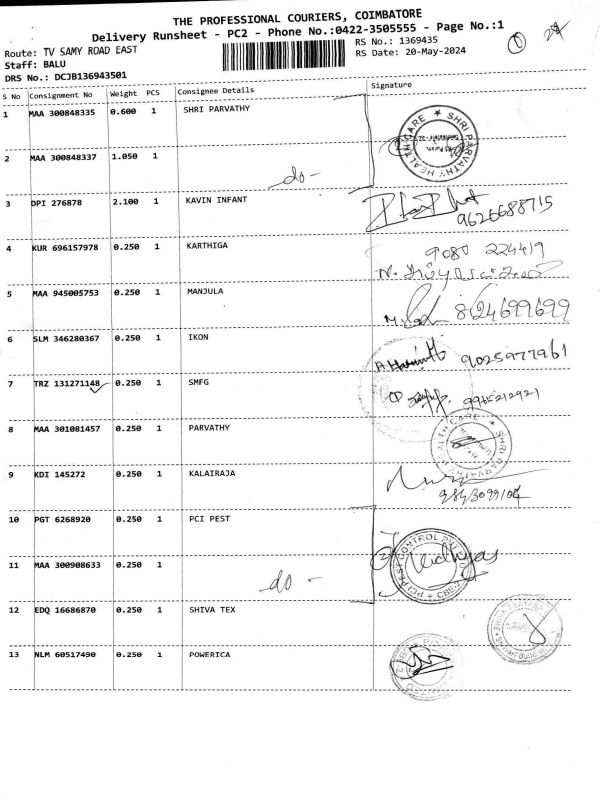 THE PROFESSIONAL COURIERS, COIMBATORE
Delivery Runsheet - PC2 - Phone No.:0422-3505555 - Page No.:1
Route: TV SAMY ROAD EAST
RS No.: 1369435
Staff: BALU
RS Date: 20-May-2024
DRS No.: DCJB136943501
S No Consignment No Weight PCS Consignee Details Signature
1 MAA 300848335 0.600 1 SHRI PARVATHY
SHRI PARVATHY HEALTH CARE
2 MAA 300848337 1.050 1
-do-
3 DPI 276878 2.100 1 KAVIN INFANT
9626688715
4 KUR 696157978 0.250 1 KARTHIGA
9080 224419
5 MAA 945005753 0.250 1 MANJULA
8124699699
6 SLM 346280367 0.250 1 IKON
9025977961
7 TRZ 131271148 0.250 1 SMFG
9965212921
8 MAA 301081457 0.250 1 PARVATHY
SHRI PARVATHY HEALTH CARE
9 KDI 145272 0.250 1 KALAIRAJA
10 PGT 6268920 0.250 1 PCI PEST
PCI PEST CONTROL PVT
Vidhyas
11 MAA 300908633 0.250 1
-do-
12 EDQ 16686870 0.250 1 SHIVA TEX
13 NLM 60517490 0.250 1 POWERICA